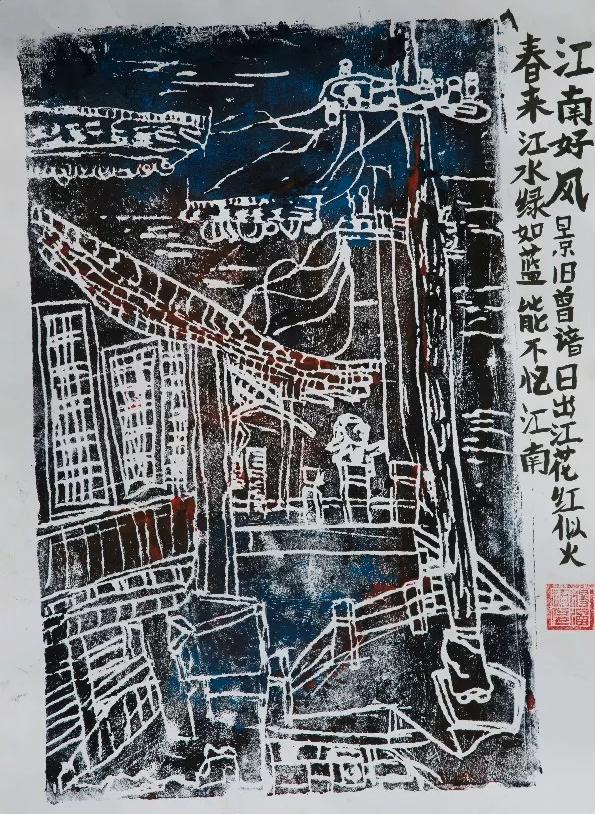 江南好风景旧曾谙日出江花红似火
春来江水绿如蓝能不忆江南